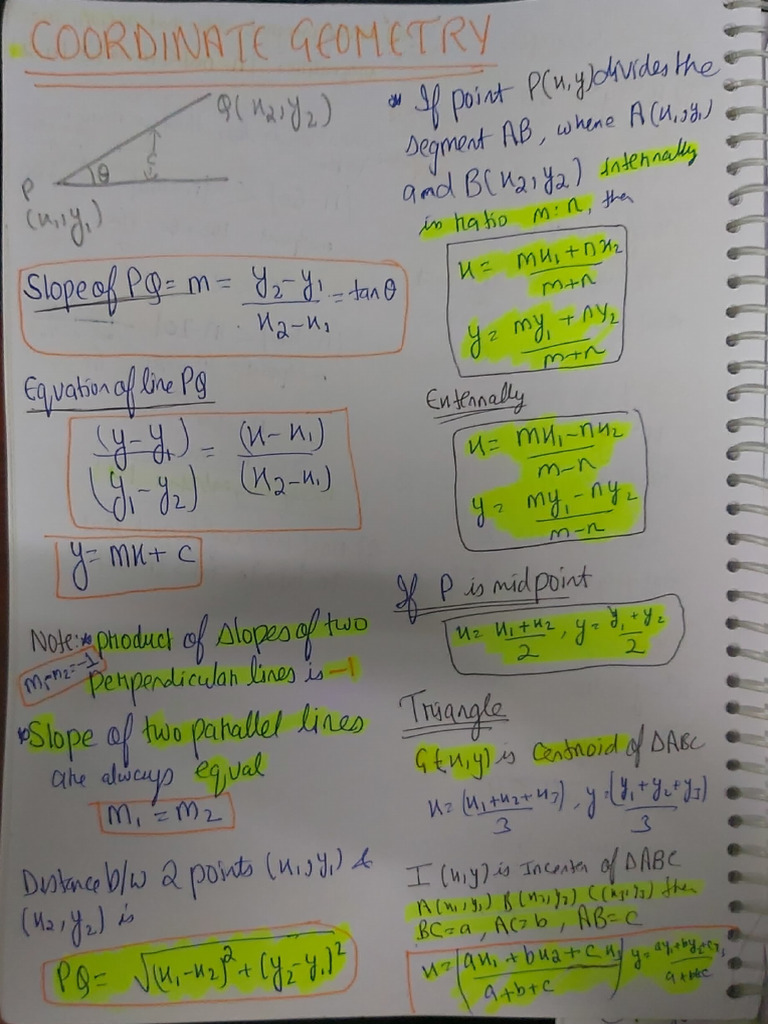 COORDINATE GEOMETRY
Q(x2, y2)
θ
P
(x1, y1)
Slope of PQ = m = (y2 - y1)/(x2 - x1) = tanθ
Equation of line PQ
(y - y1)/(y1 - y2) = (x - x1)/(x2 - x1)
y = mx + c
Note: * product of slopes of two
m1m2 = -1
perpendicular lines is -1
* Slope of two parallel lines
are always equal
m1 = m2
Distance b/w 2 points (x1, y1) &
(x2, y2) is
PQ = √(x1 - x2)² + (y2 - y1)²
* If point P(x, y) divides the
segment AB, where A(x1, y1)
and B(x2, y2) internally
in ratio m:n, then
x = (mx1 + nx2)/(m+n)
y = (my1 + ny2)/(m+n)
Externally
x = (mx1 - nx2)/(m-n)
y = (my1 - ny2)/(m-n)
If P is midpoint
x = (x1 + x2)/2, y = (y1 + y2)/2
Triangle
G(x, y) is Centroid of ΔABC
x = (x1 + x2 + x3)/3, y = (y1 + y2 + y3)/3
I (x, y) is Incenter of ΔABC
A(x1, y1) B(x2, y2) C(x3, y3) then
BC = a, AC = b, AB = c
x = (ax1 + bx2 + cx3)/(a+b+c) y = (ay1 + by2 + cy3)/(a+b+c)